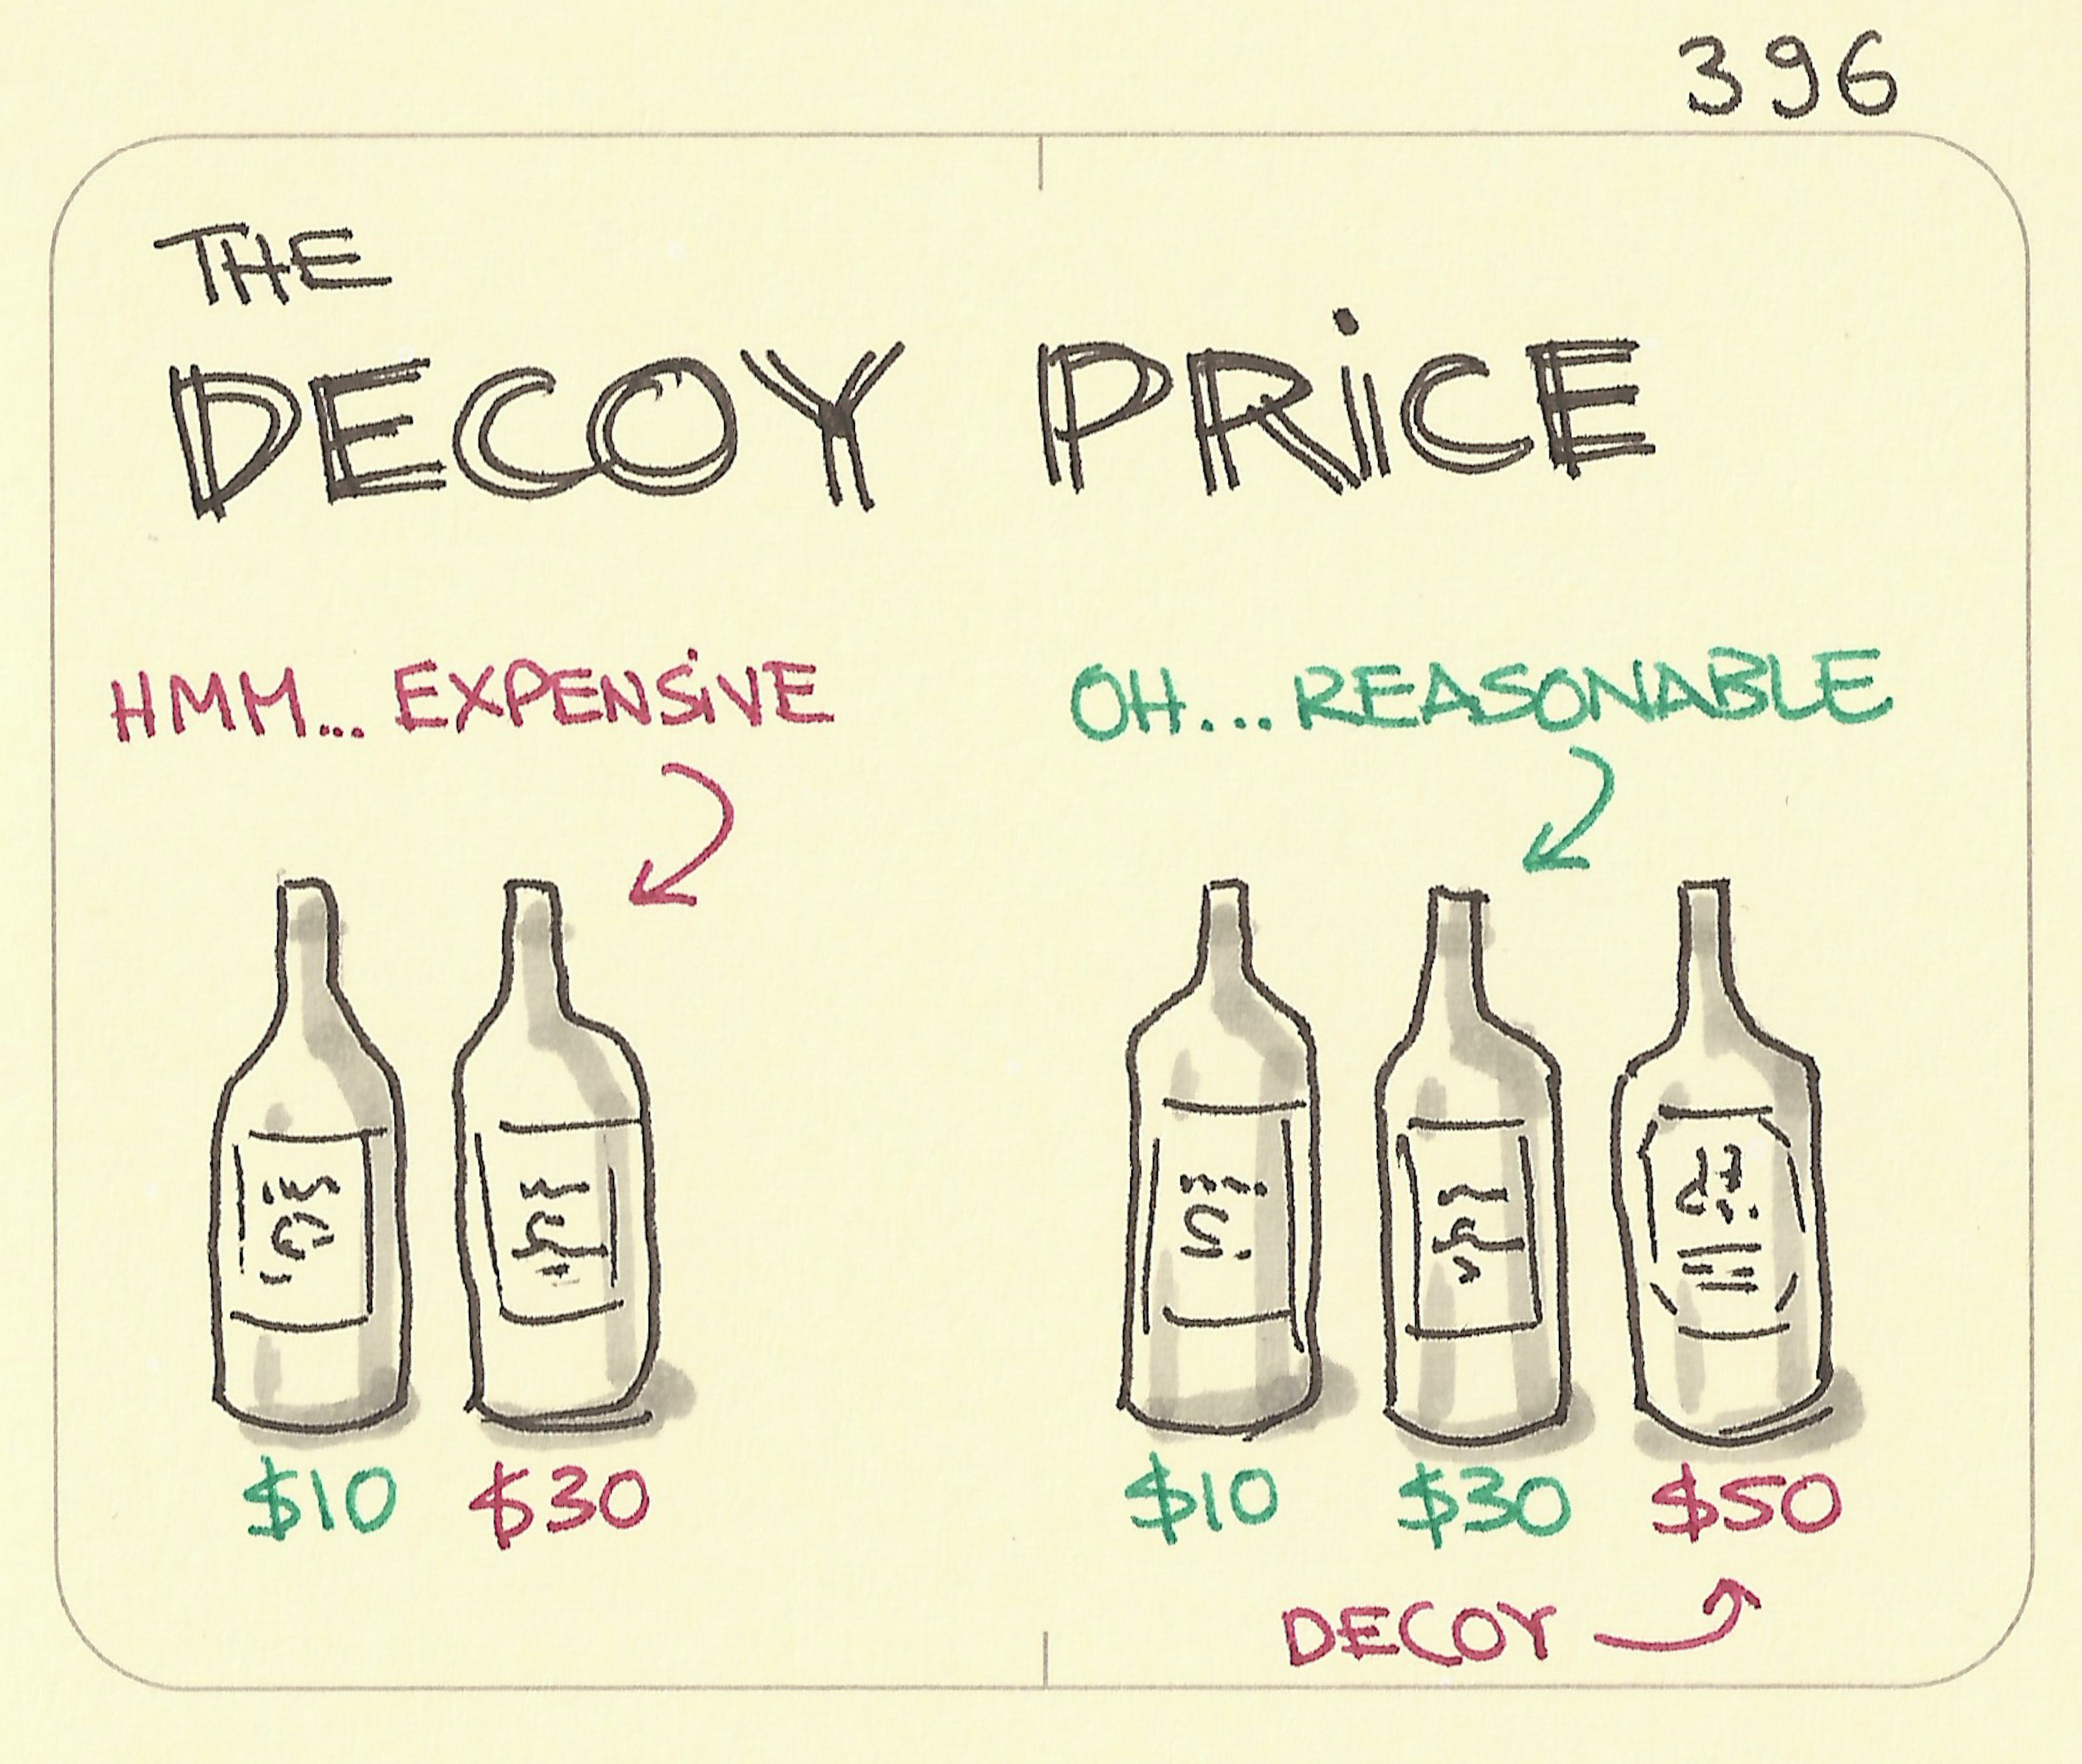 396
THE
DECOY PRiCE
HMM... EXPENSiVE
OH... REASONABLE
$10 $30
$10 $30 $50
DECOY